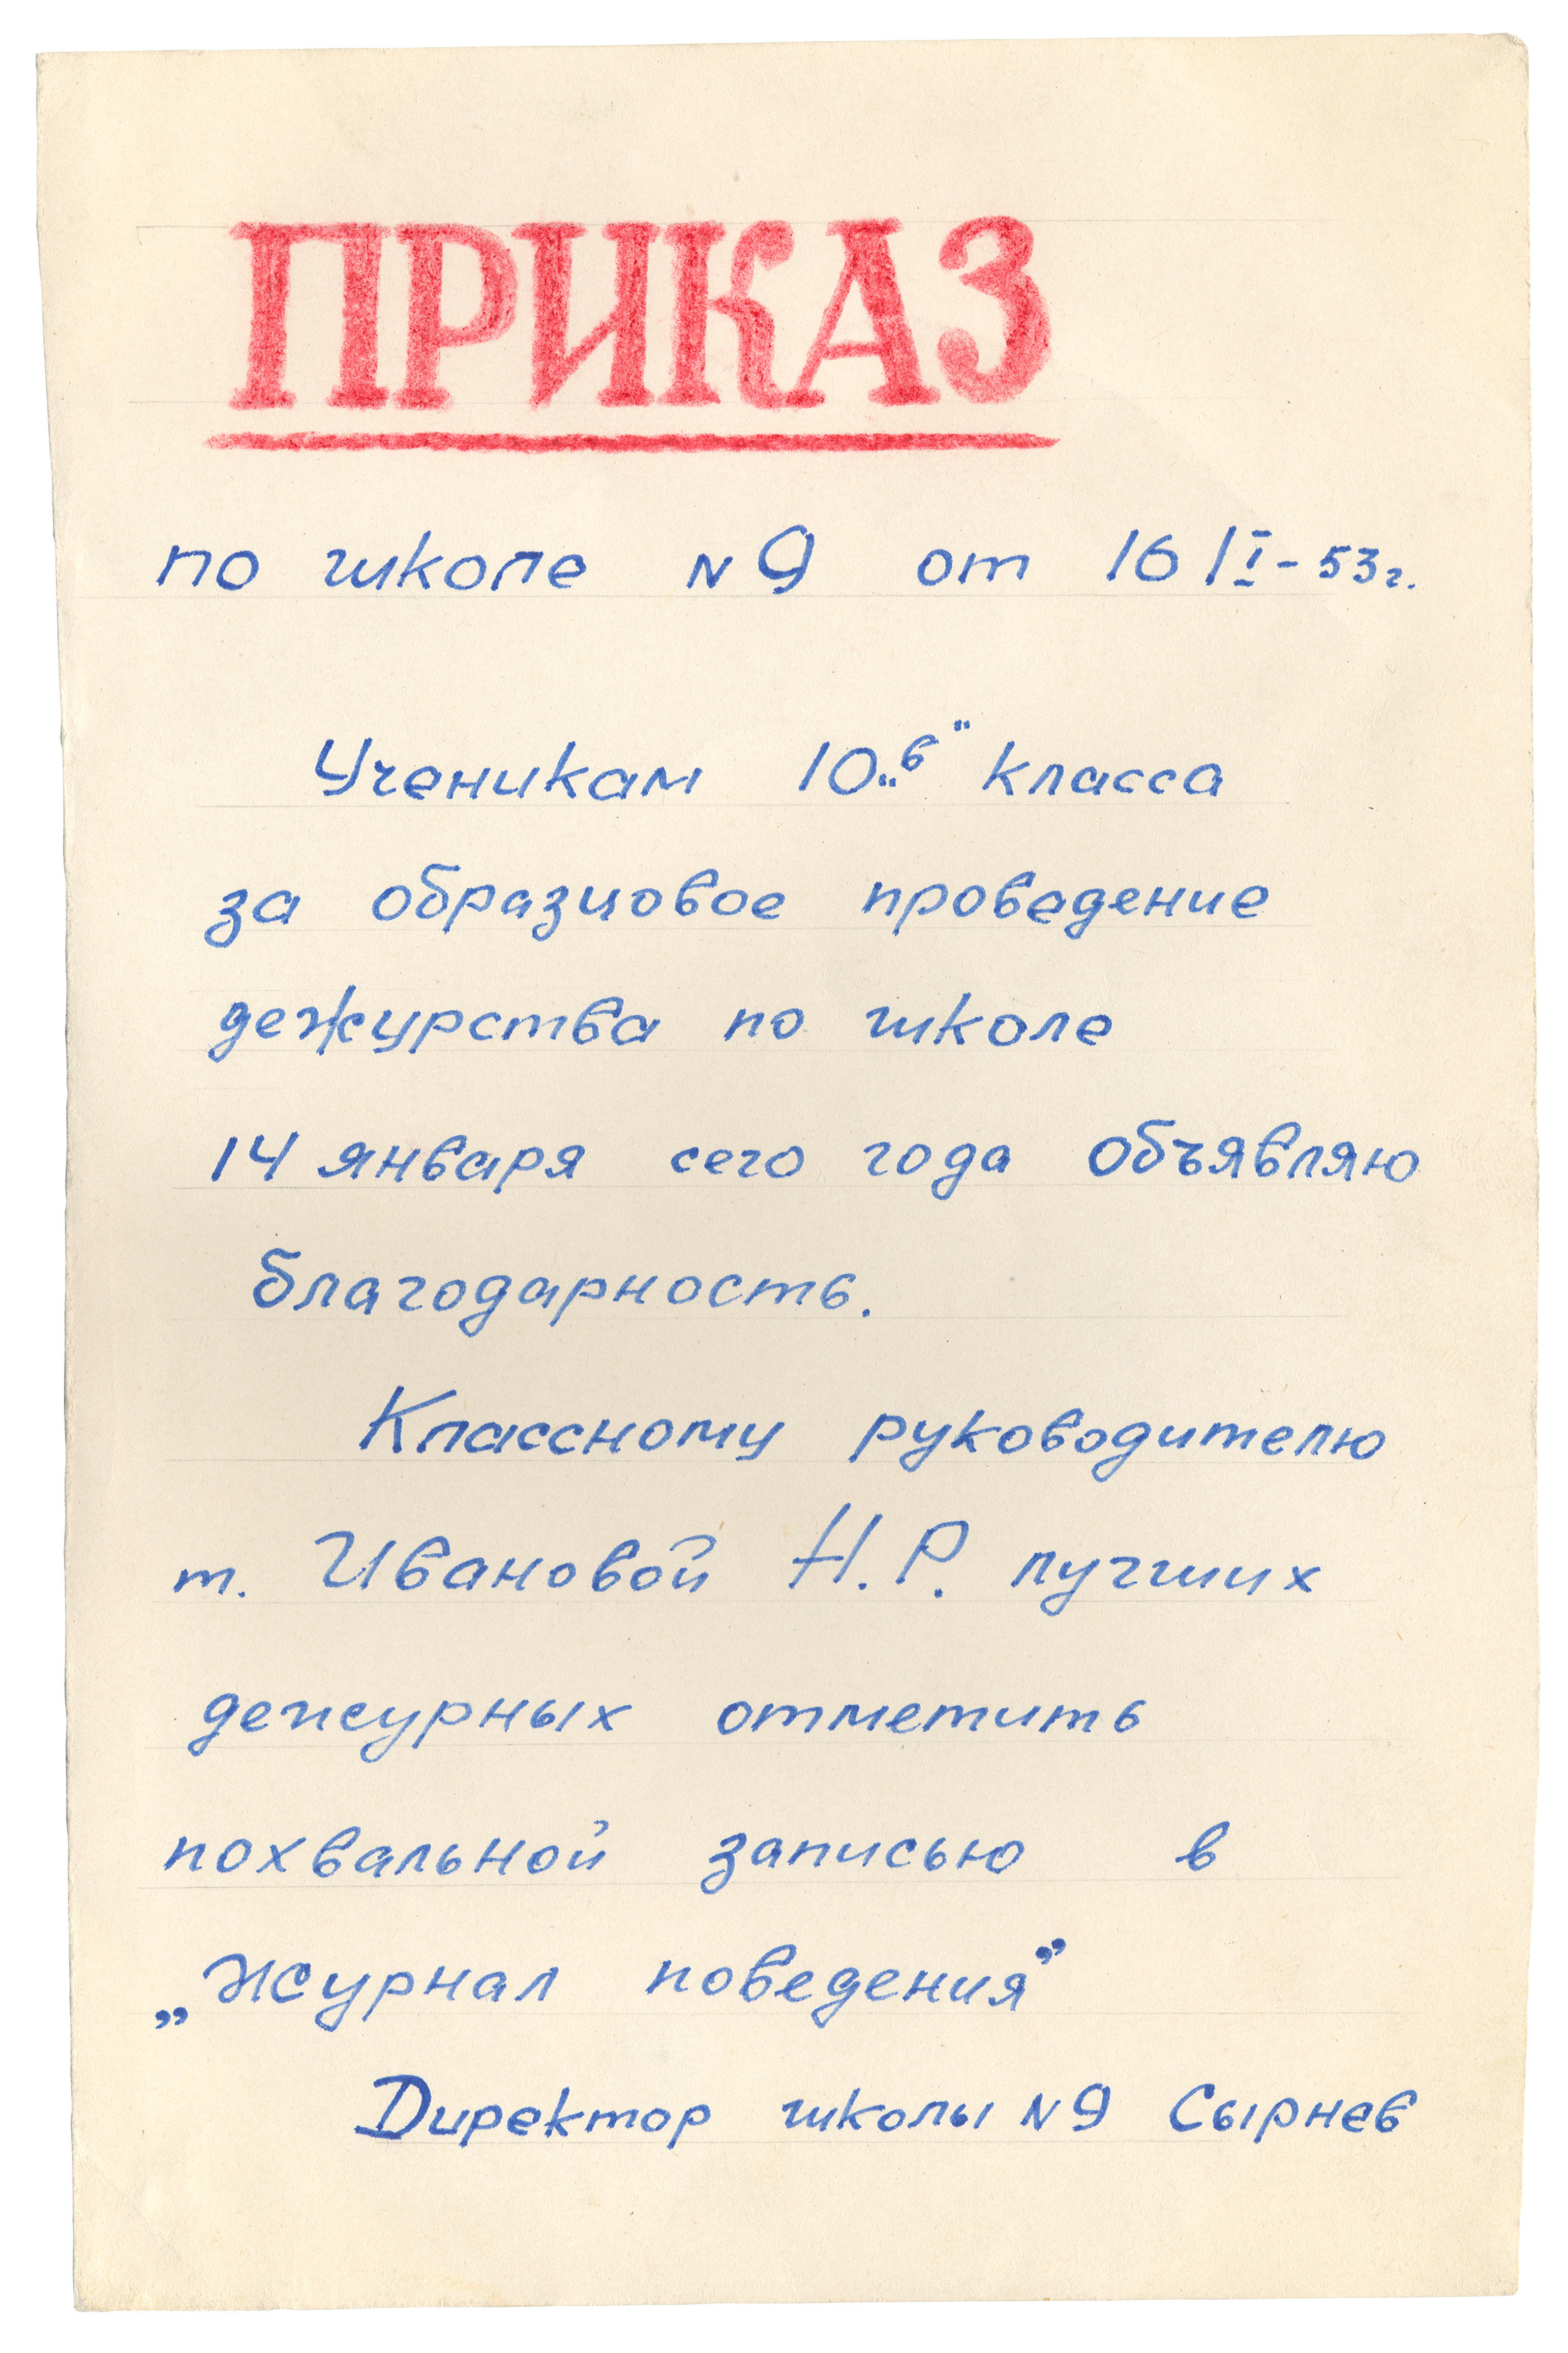 ПРИКАЗ
по школе N 9 от 16/I-53г.
Ученикам 10 „в“ класса
за образцовое проведение
дежурства по школе
14 января сего года объявляю
благодарность.
Классному руководителю
т. Ивановой Н.Р. лучших
дежурных отметить
похвальной записью в
„Журнал поведения”
Директор школы N 9 Сырнев